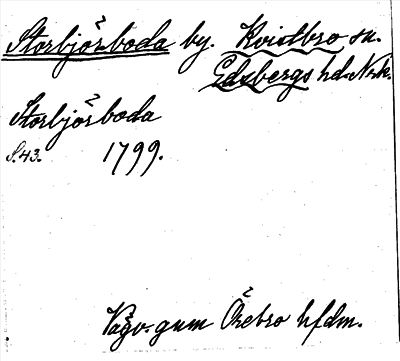 Storbjörboda by. Kvistbro sn.
Edsbergs hd. Nrk.
Storbjörboda
S. 43. 1799.
Vägv. gnm Örebro hfdm.